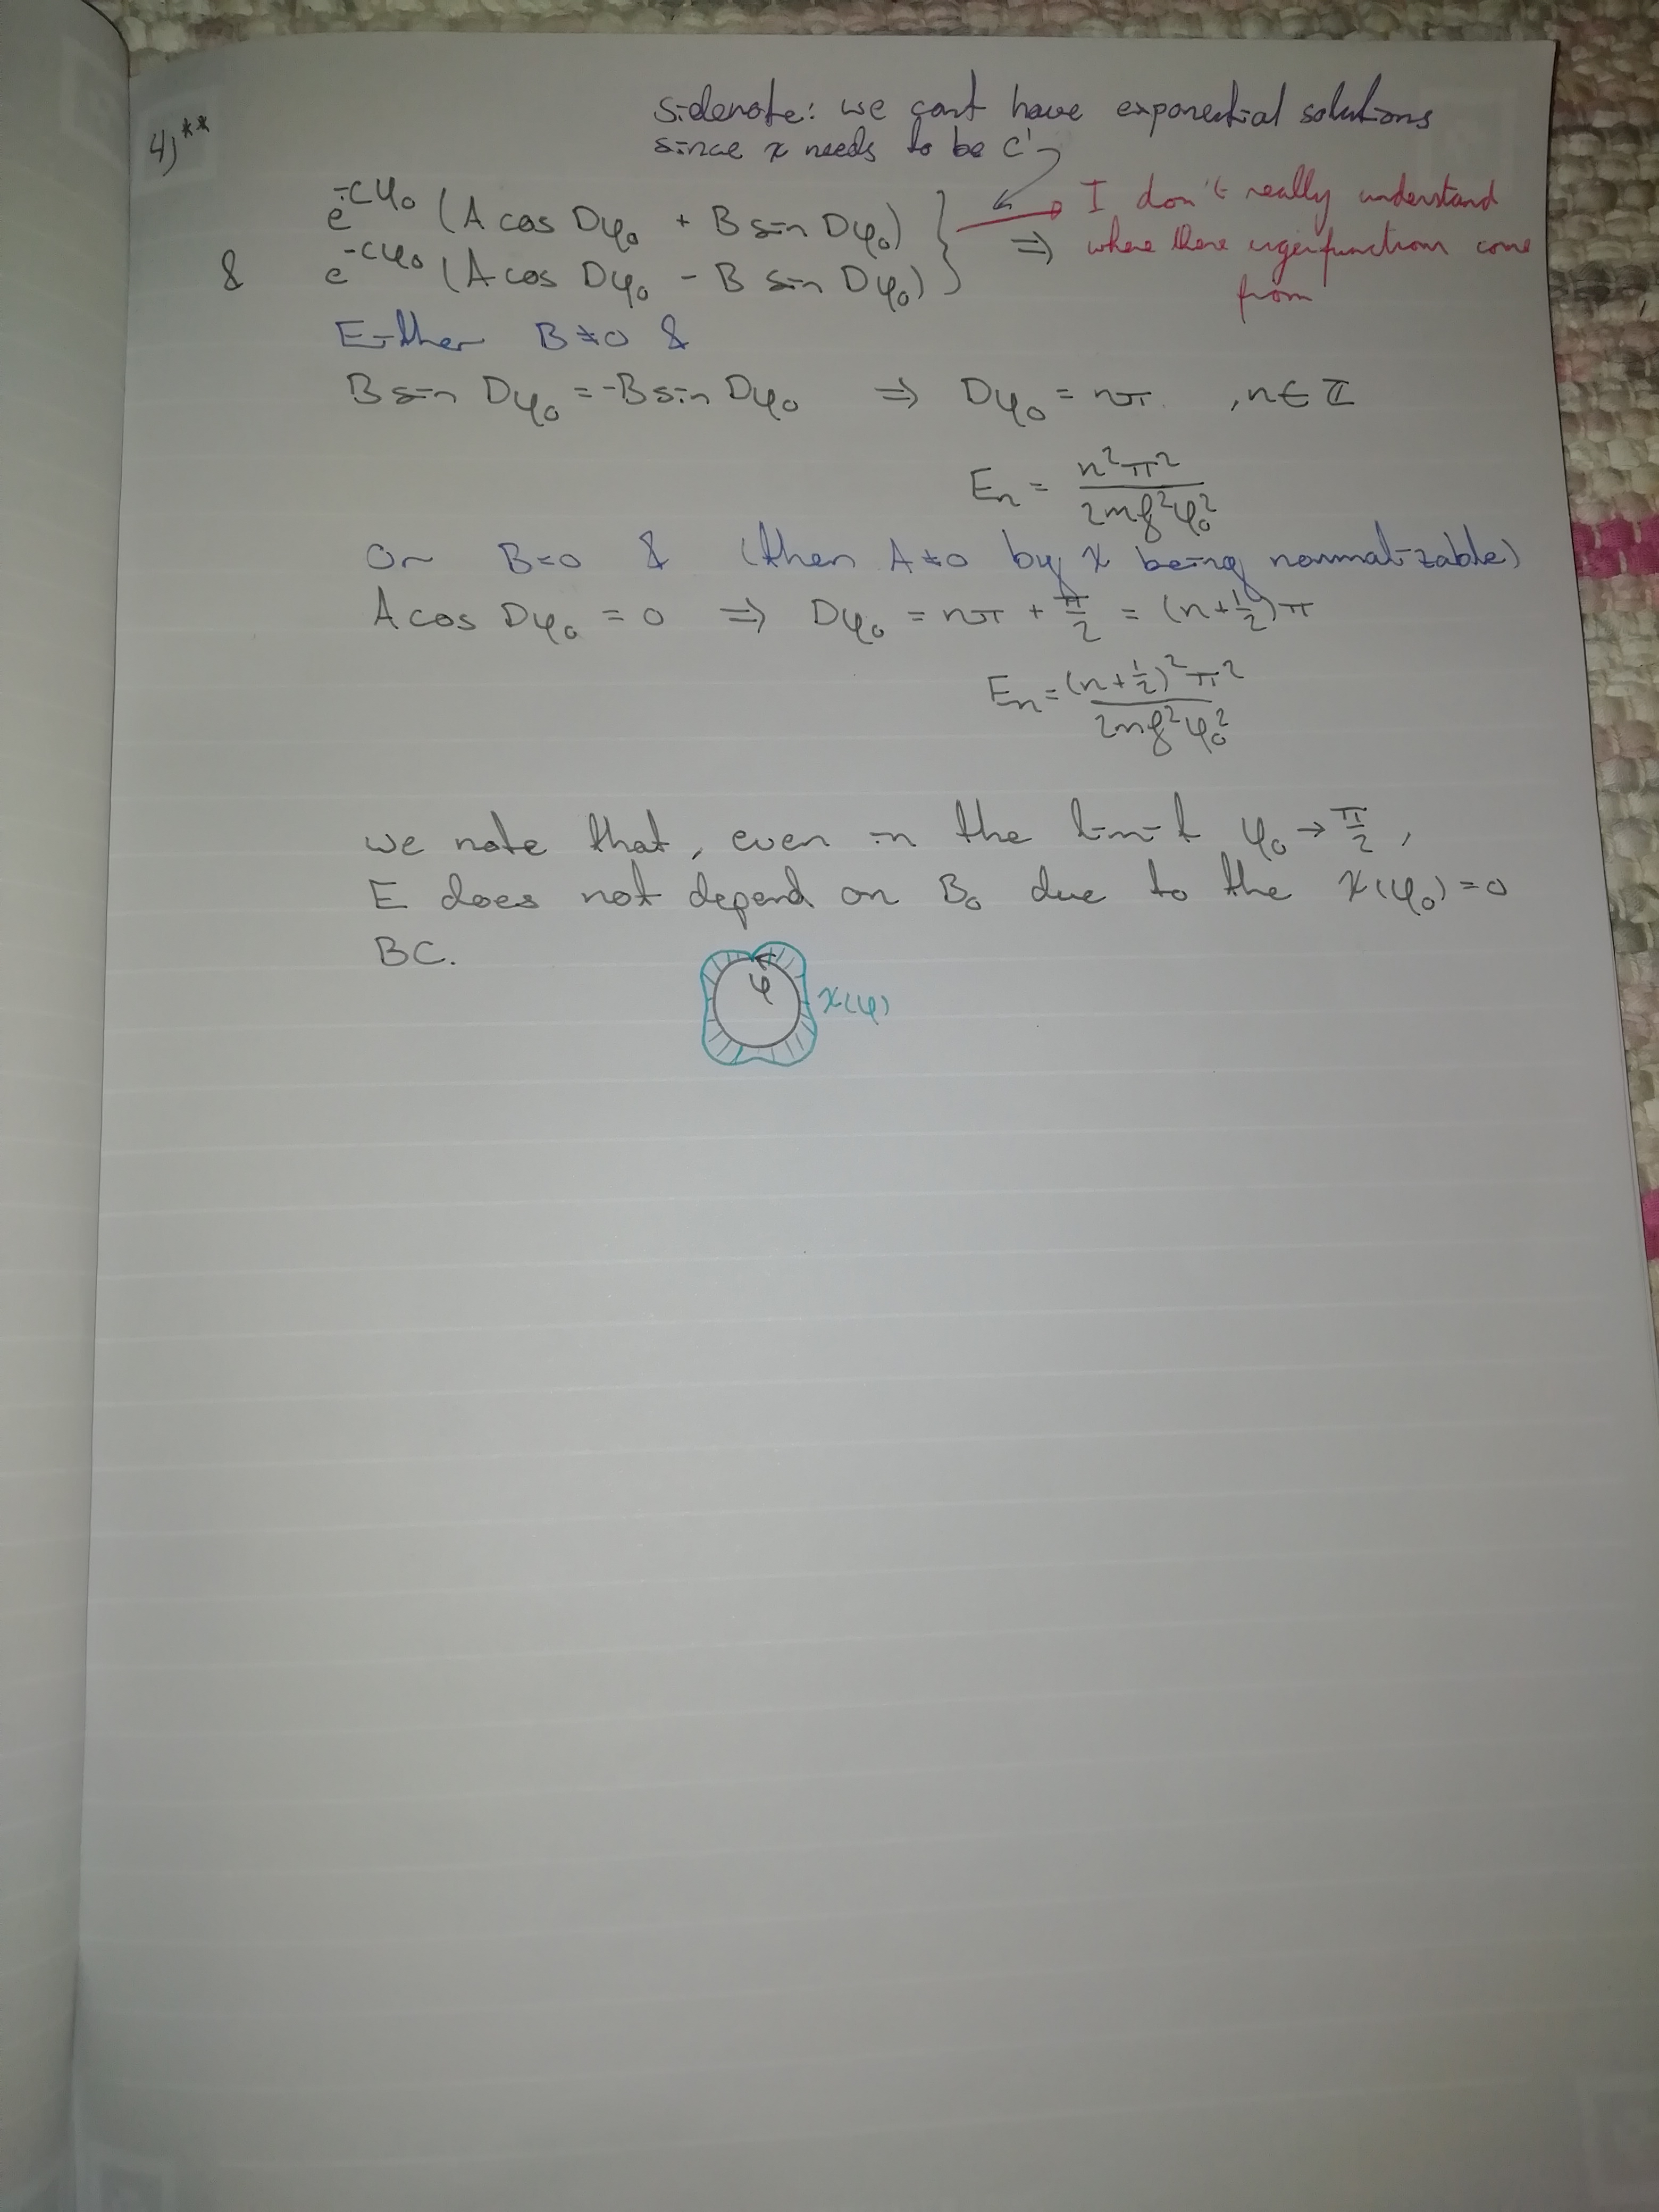 4)**
sidenote: we can't have exponential solutions
since χ needs to be C¹
e^{-Cφ₀} (A cos Dφ₀ + B sin Dφ₀)
& e^{-Cφ₀} (A cos Dφ₀ - B sin Dφ₀) ⇒
I don't really understand
where these eigenfunctions come
from
Either B≠0 &
B sin Dφ₀ = -B sin Dφ₀ ⇒ Dφ₀ = nπ , n∈ℤ
Eₙ = n²π² / 2mρ²φ₀²
Or B=0 & (then A≠0 by χ being normalizable)
A cos Dφ₀ = 0 ⇒ Dφ₀ = nπ + π/2 = (n+½)π
Eₙ = (n+½)²π² / 2mρ²φ₀²
we note that, even in the limit φ₀ → π/2 ,
E does not depend on B₀ due to the χ(φ₀) = 0
BC.
φ
χ(φ)